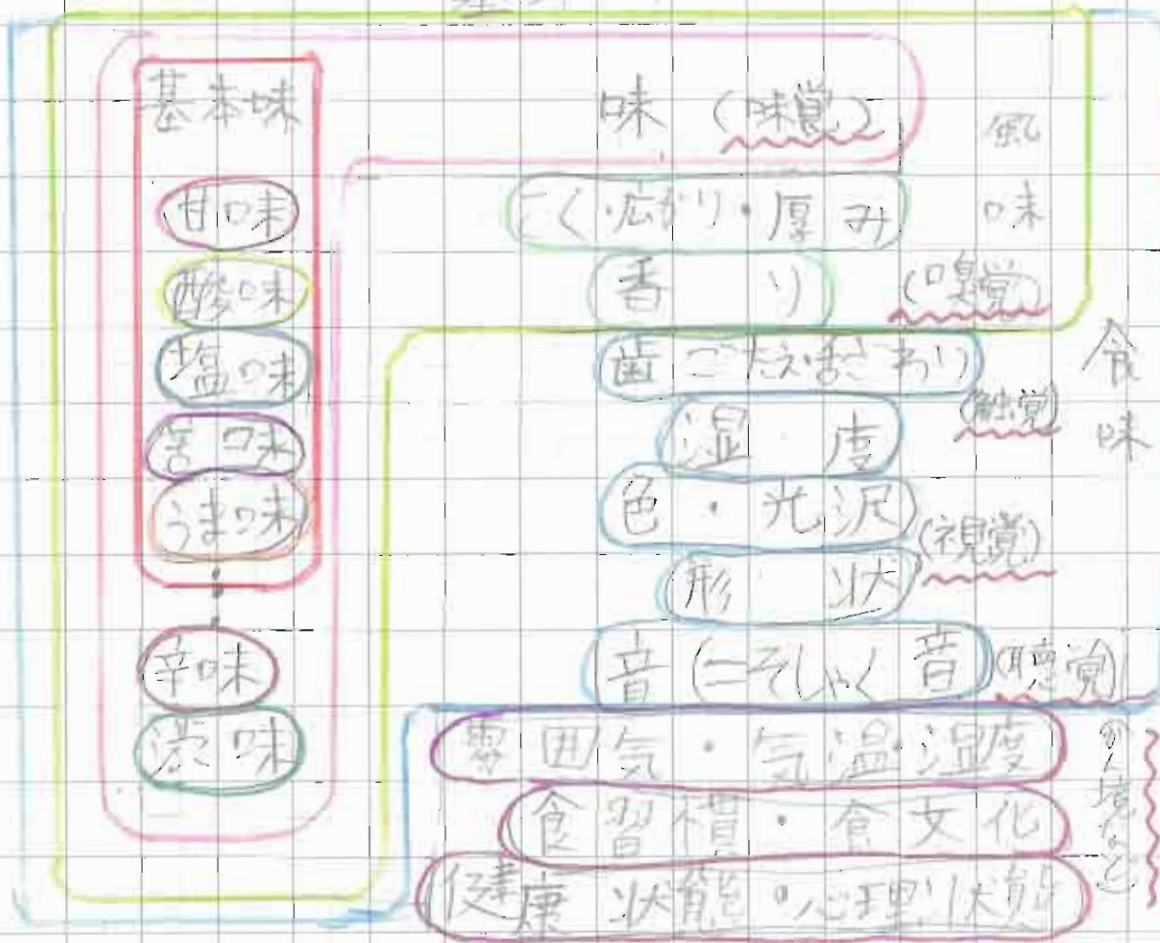 基本味
甘味
酸味
塩味
苦味
うま味
辛味
渋味
味 (味覚)
こく・広がり・厚み
香り (嗅覚)
風味
歯ごたえ・舌ざわり
(触覚)
湿度
色・光沢
(視覚)
形状
音(=そしゃく音) (聴覚)
食味
雰囲気・気温・湿度
食習慣・食文化
健康状態・心理状態
かん境など